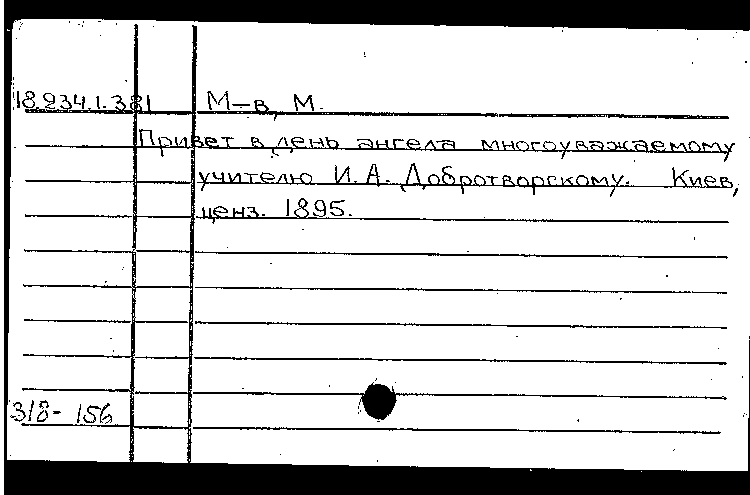 18.234.1.381 М-в, М.
Привет в день ангела многоуважаемому
учителю И.А. Добротворскому. Киев,
ценз. 1895.
318-156